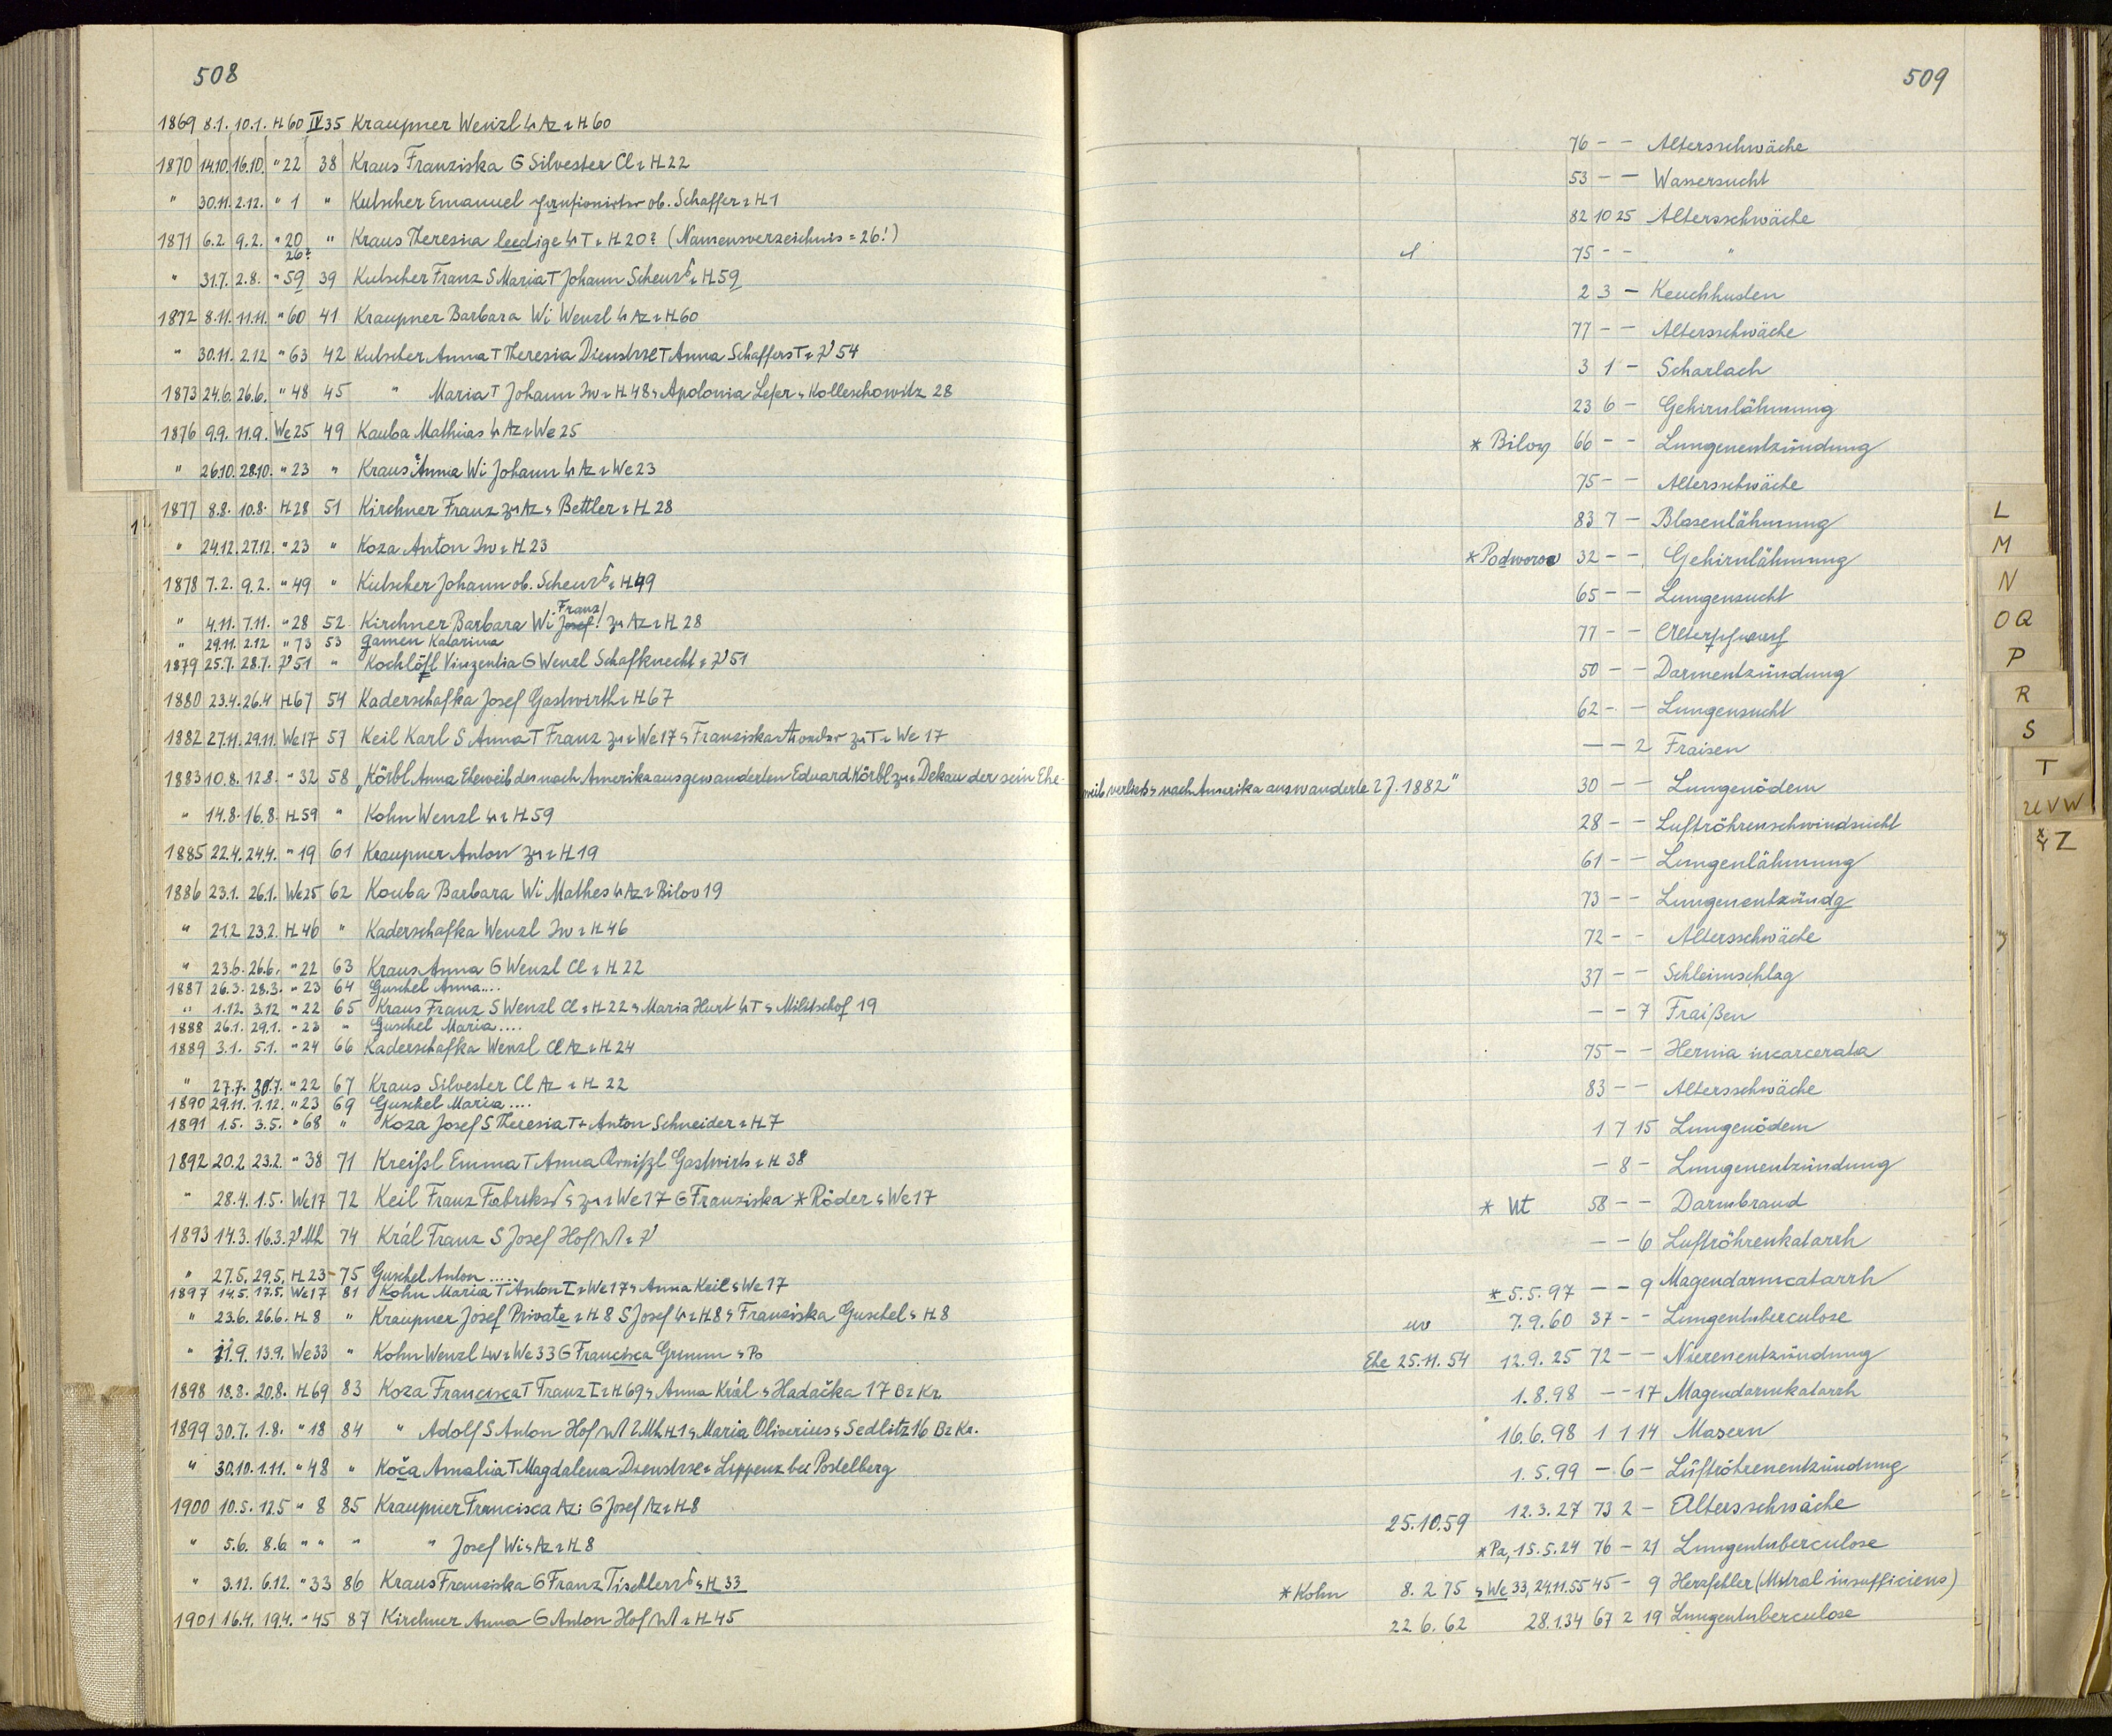 508
1869 8.1. 10.1. H 60 IV 35 Kraupner Wenzl H 60
1870 14.10. 16.10. " 22 38 Kraus Franziska G Silvester Cl H 22
" 30.11. 2.12. " 1 " Kutscher Emanuel ob. Schaffer H 1
1871 6.2. 9.2. " 20 " Kraus Theresia leedige T H 20? (Namensverzeichnis = 26!)
26?
" 31.7. 2.8. " 59 39 Kutscher Franz S Maria T Johann Scheur H 59
1872 8.11. 11.11. " 60 41 Kraupner Barbara Wi Wenzl Az H 60
" 30.11. 2.12 " 63 42 Kutscher Anna T Theresia T Anna Schaffers T 54
1873 24.6. 26.6. " 48 45 " Maria T Johann Iw H 48 Apolonia Kolleschowitz 28
1876 9.9. 11.9. We 25 49 Kauba Mathias Az We 25
" 26.10. 28.10. " 23 " Kraus Anna Wi Johann Az We 23
1877 8.8. 10.8. H 28 51 Kirchner Franz Az Bettler H 28
" 24.12. 27.12. " 23 " Koza Anton Iw H 23
1878 7.2. 9.2. " 49 " Kutscher Johann ob. Scheur H 49
Franz!
" 4.11. 7.11. " 28 52 Kirchner Barbara Wi Josef! Az H 28
" 29.11. 2.12 " 73 53 Gamen Katarina
1879 25.7. 28.7. 51 " Kochlöfl Vinzentia G Wenzl Schafknecht 51
1880 23.4. 26.4 H 67 54 Kaderschafka Josef Gastwirth H 67
1882 27.11. 29.11. We 17 57 Keil Karl S Anna T Franz We 17 Franziska T We 17
1883 10.8. 12.8. " 32 58 „Körbl Anna Eheweib des nach Amerika ausgewanderten Eduard Körbl Dekau der sein Ehe-
" 14.8. 16.8. H 59 " Kohn Wenzl H 59
1885 22.4. 24.4. " 19 61 Kraupner Anton H 19
1886 23.1. 26.1. We 25 62 Kouba Barbara Wi Mathes Az Bilov 19
" 21.2. 23.2. H 46 " Kaderschafka Wenzl Iw H 46
" 23.6. 26.6. " 22 63 Kraus Anna G Wenzl Cl H 22
1887 26.3. 28.3. " 23 64 Guschel Anna....
" 1.12. 3.12 " 22 65 Kraus Franz S Wenzl Cl H 22 Maria Hurt T Militschof 19
1888 26.1. 29.1. " 23 " Guschel Maria....
1889 3.1. 5.1. " 24 66 Kaderschafka Wenzl Cl Az H 24
" 27.7. 30.7. " 22 67 Kraus Silvester Cl Az H 22
1890 29.11. 1.12. " 23 69 Guschel Maria....
1891 1.5. 3.5. " 68 " Koza Josef S Theresia T Anton Schneider H 7
1892 20.2 23.2. " 38 71 Kreißl Emma T Anna Gastwirts H 38
" 28.4. 1.5. We 17 72 Keil Franz Fabriks We 17 G Franziska * Röder We 17
1893 14.3. 16.3. Mh 74 Král Franz S Josef Hof
" 27.5. 29.5. H 23 - 75 Guschel Anton......
1897 14.5. 17.5. We 17 81 Kohn Maria T Anton I We 17 Anna Keil We 17
" 23.6. 26.6. H 8 " Kraupner Josef Private H 8 S Josef H 8 Franziska Guschel H 8
" 11.9. 13.9. We 33 " Kohn Wenzl We 33 G Francisca Grimm Po
1898 18.8. 20.8. H 69 83 Koza Francisca T Franz I H 69 Anna Král Hadačka 17 Bz Kr.
1899 30.7. 1.8. " 18 84 " Adolf S Anton Hof Mh H 1 Maria Oliverius Sedlitz 16 Bz Kr.
" 30.10. 1.11. " 48 " Koča Amalia T Magdalena Lippenz bei Postelberg
1900 10.5. 12.5 " 8 85 Kraupner Francisca Az: G Josef Az H 8
" 5.6. 8.6. " " " " Josef Wi Az H 8
" 3.12. 6.12. " 33 86 Kraus Franziska G Franz Tischler H 33
1901 16.4. 19.4. " 45 87 Kirchner Anna G Anton Hof H 45
509
76 - - Altersschwäche
53 - - Wassersucht
82 10 25 Altersschwäche
75 - - "
2 3 - Keuchhusten
77 - - Altersschwäche
3 1 - Scharlach
23 6 - Gehirnlähmung
* Bilov 66 - - Lungenentzündung
75 - - Altersschwäche
83 7 - Blasenlähmung
* Podworow 32 - - Gehirnlähmung
65 - - Lungensucht
77 - -
50 - - Darmentzündung
62 - - Lungensucht
- - 2 Fraisen
weib verließ nach Amerika auswanderte 2 J. 1882" 30 - - Lungenödem
28 - - Luftröhrenschwindsucht
61 - - Lungenlähmung
73 - - Lungenentzündg
72 - - Altersschwäche
37 - - Schleimschlag
- - 7 Fraißen
75 - - Hernia incarcerata
83 - - Altersschwäche
1 7 15 Lungenödem
- 8 - Lungenentzündung
* Wt 58 - - Darmbrand
- - 6 Luftröhrenkatarrh
* 5.5.97 - - 9 Magendarmcatarrh
uv 7.9.60 37 - - Lungentuberculose
Ehe 25.11.54 12.9.25 72 - - Nierenentzündung
1.8.98 - - 17 Magendarmkatarrh
16.6.98 1 1 14 Masern
1.5.99 - 6 - Luftröhrenentzündung
25.10.59 12.3.27 73 2 - Altersschwäche
* Pa, 15.5.24 76 - 21 Lungentuberculose
* Kohn 8.2.75 We 33, 24.11.55 45 - 9 Herzfehler (Mitral insufficiens)
22.6.62 28.1.34 67 2 19 Lungentuberculose
L
M
N
OQ
P
R
S
T
UVW
Z